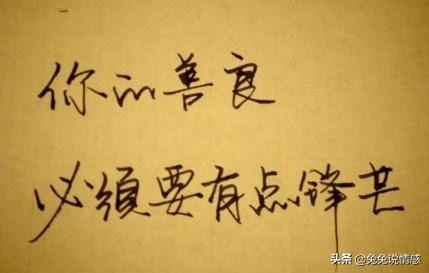 你的善良
必須要有点锋芒
头条 @兔兔说情感